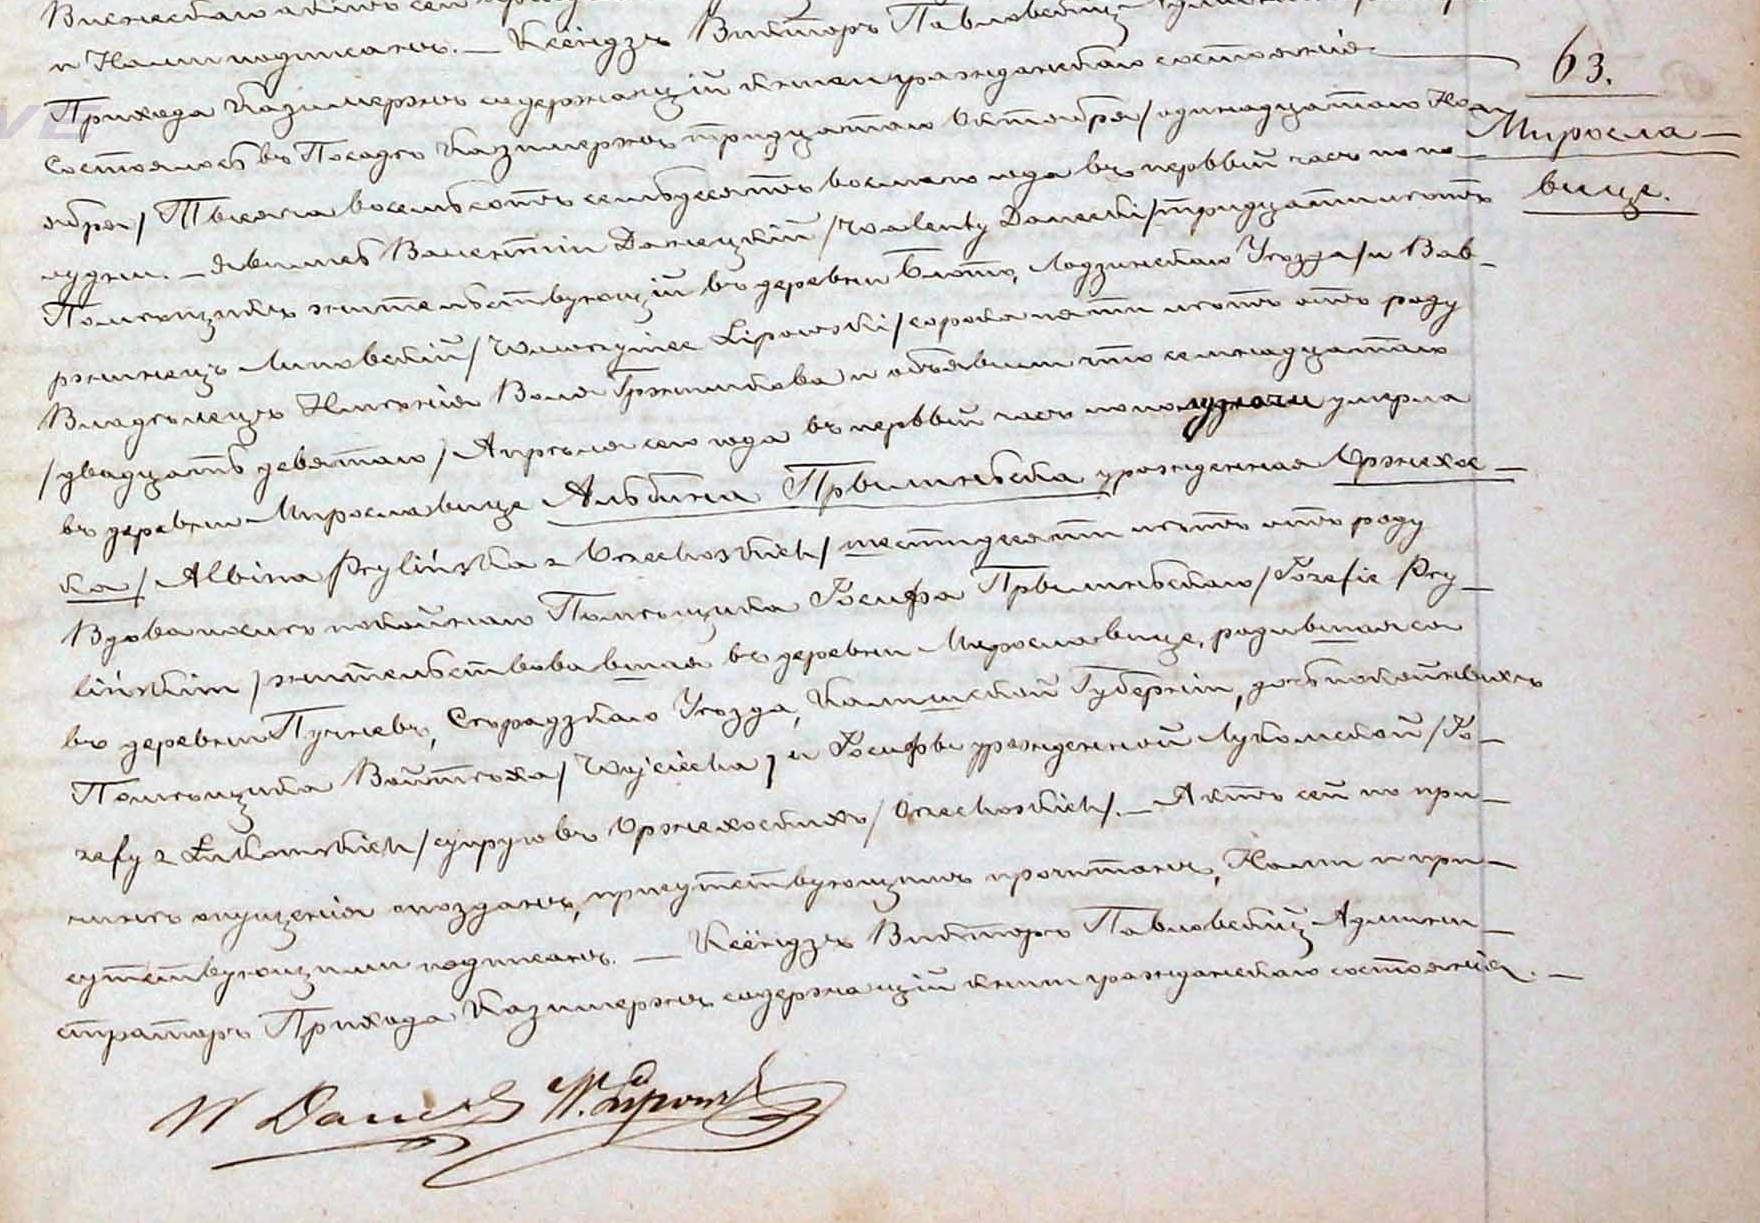 и Нами подписанъ. — Ксёндзъ Викторъ Павловскій
Прихода Казимержъ содержащій книги гражданскаго состоянія
63.
Миросла-
вице.
Состоялось въ Посадѣ Казимержъ тридцатаго Октября/одинадцатаго Но-
ября/ Тысяча восемьсотъ семьдесятъ восмаго года въ первый часъ по по-
лудни. — Явились Валентій Данецкій /Walenty Danecki/ тридцати лѣтъ
Помѣщикъ жительствующій въ деревни Блото, Лодзинскаго Уѣзда/и Вав-
ржинецъ Липовскій/ Wawrzyniec Lipowski/сорока пяти лѣтъ отъ роду
Владѣлецъ Имѣнія Воля Гржимкова и объявили что семнадцатаго
/двадцать девятаго/ Апрѣля сего года въ первый часъ пополудни умерла
въ деревни Мирославице Альбина Прылиньска урожденная Оржехос-
ка/ Albina Prylińska z Orzechoskich/ шестидесяти лѣтъ отъ роду
Вдова послѣ покойнаго Помѣщика Іосифа Прылиньскаго/Józefie Pry-
lińskim/жительствовавшая въ деревни Мирославице, родившаяся
въ деревни Пучневъ, Сѣрадзкаго Уѣзда, Калишской Губерніи, дочь покойныхъ
Помѣщика Войтѣха/ Wojciecha/ и Іосифы урожденной Лукомской/Jó-
zefy z Łukomskich/супруговъ Оржехоскихъ/ Orzechoskich/. — Актъ сей по при-
чинѣ опущенія опозданъ, присутствующимъ прочитанъ, Нами и при-
сутствующими подписанъ. — Ксёндзъ Викторъ Павловскій Админи-
страторъ Прихода Казимержъ содержащій книги гражданскаго состоянія. —
W Danecki W. Lipowski